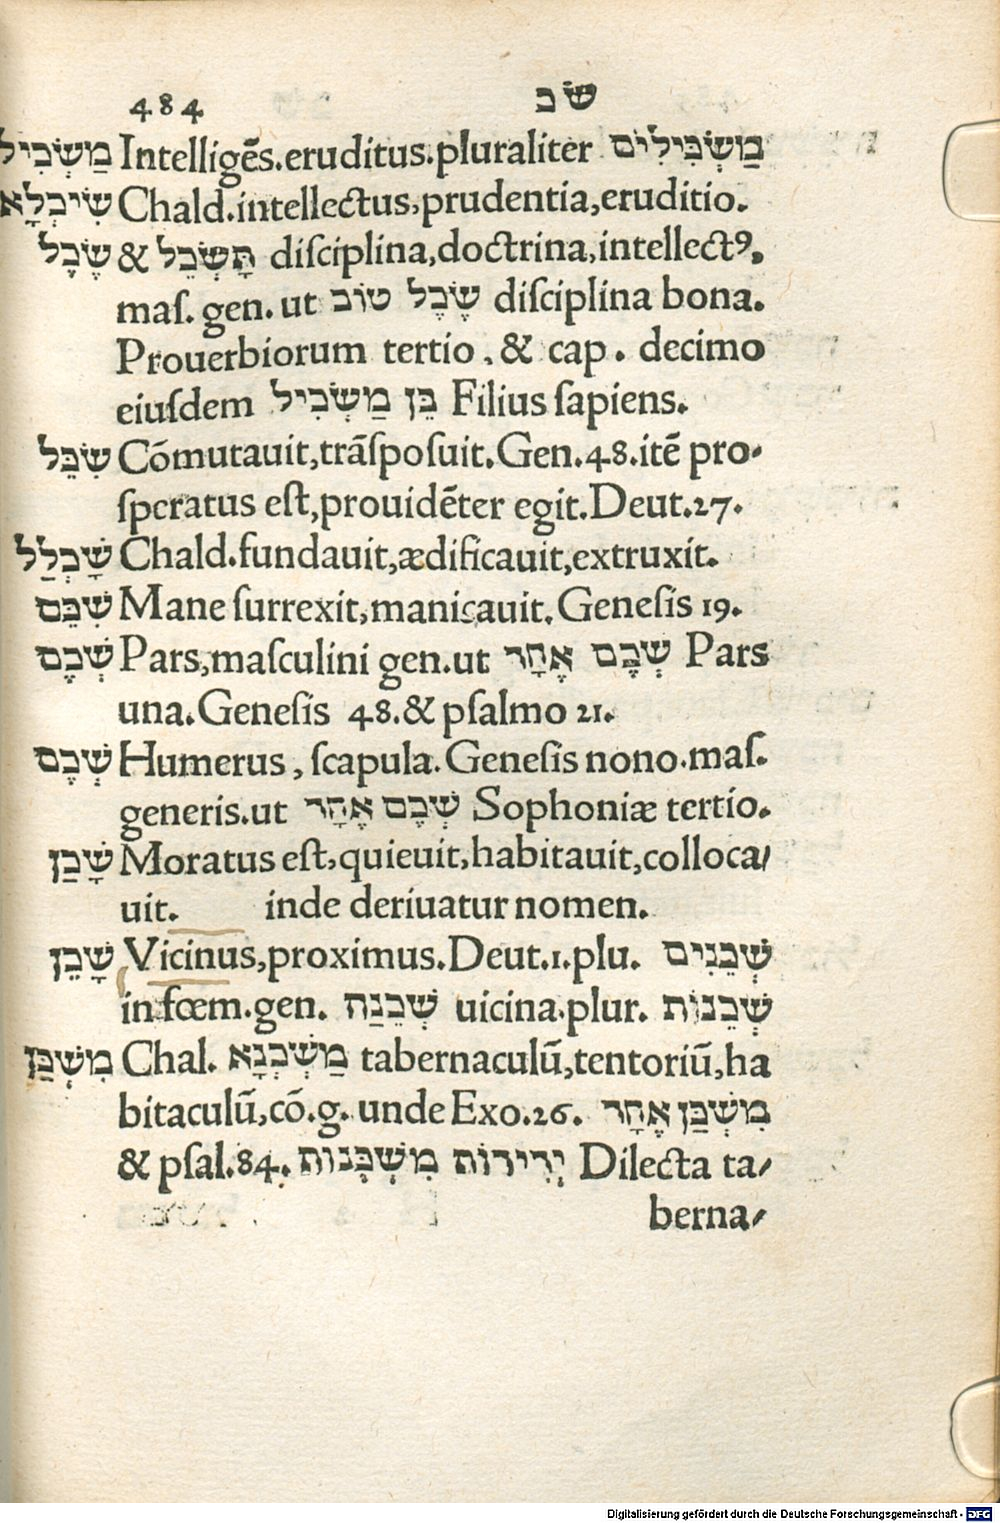 484 שׂכ
מַשְׂכִיל Intelligẽs.eruditus.pluraliter מַשְׂכִּילִים
שִׂיכְלָא Chald.intellectus,prudentia,eruditio.
שֶׂכֶל & תָּשְׂכֵל diſciplina,doctrina,intellectꝰ,
maſ. gen. ut שֶׂכֶל טוֹב diſciplina bona.
Prouerbiorum tertio , & cap . decimo
eiuſdem בֵּן מַשְׂכִיל Filius ſapiens.
שִׂכֵּל Cõmutauit,trãſpoſuit.Gen.48.itẽ pro⸗
ſperatus eſt,prouidẽter egit.Deut.27.
שָׁכְלַל Chald.fundauit,ædificauit,extruxit.
שִׁכֵּם Mane ſurrexit,manicauit.Geneſis 19.
שְׁכֶם Pars,maſculini gen.ut שְׁכֶם אֶחָר Pars
una.Geneſis 48.& pſalmo 21.
שְׁכֶם Humerus , ſcapula. Geneſis nono.maſ.
generis.ut שְׁכֶם אֶחָר Sophoniæ tertio.
שָׁכַן Moratus eſt,quieuit,habitauit,colloca⸗
uit. inde deriuatur nomen.
שָׁכֵן Vicinus,proximus.Deut.1.plu. שְׁכֵנִים
in fœm.gen. שְׁכֵנַה uicina.plur. שְׁכֵנוֹת
מִשְׁכַּן Chal. מַשְׁכְנָא tabernaculũ,tentoriũ,ha
bitaculũ,cõ.g. unde Exo.26. מִשְׁכַּן אֶחָר
& pſal.84. יְדִידוֹת מִשְׁכָּנוֹת Dilecta ta⸗
berna⸗
Digitalisierung gefördert durch die Deutsche Forschungsgemeinschaft - DFG